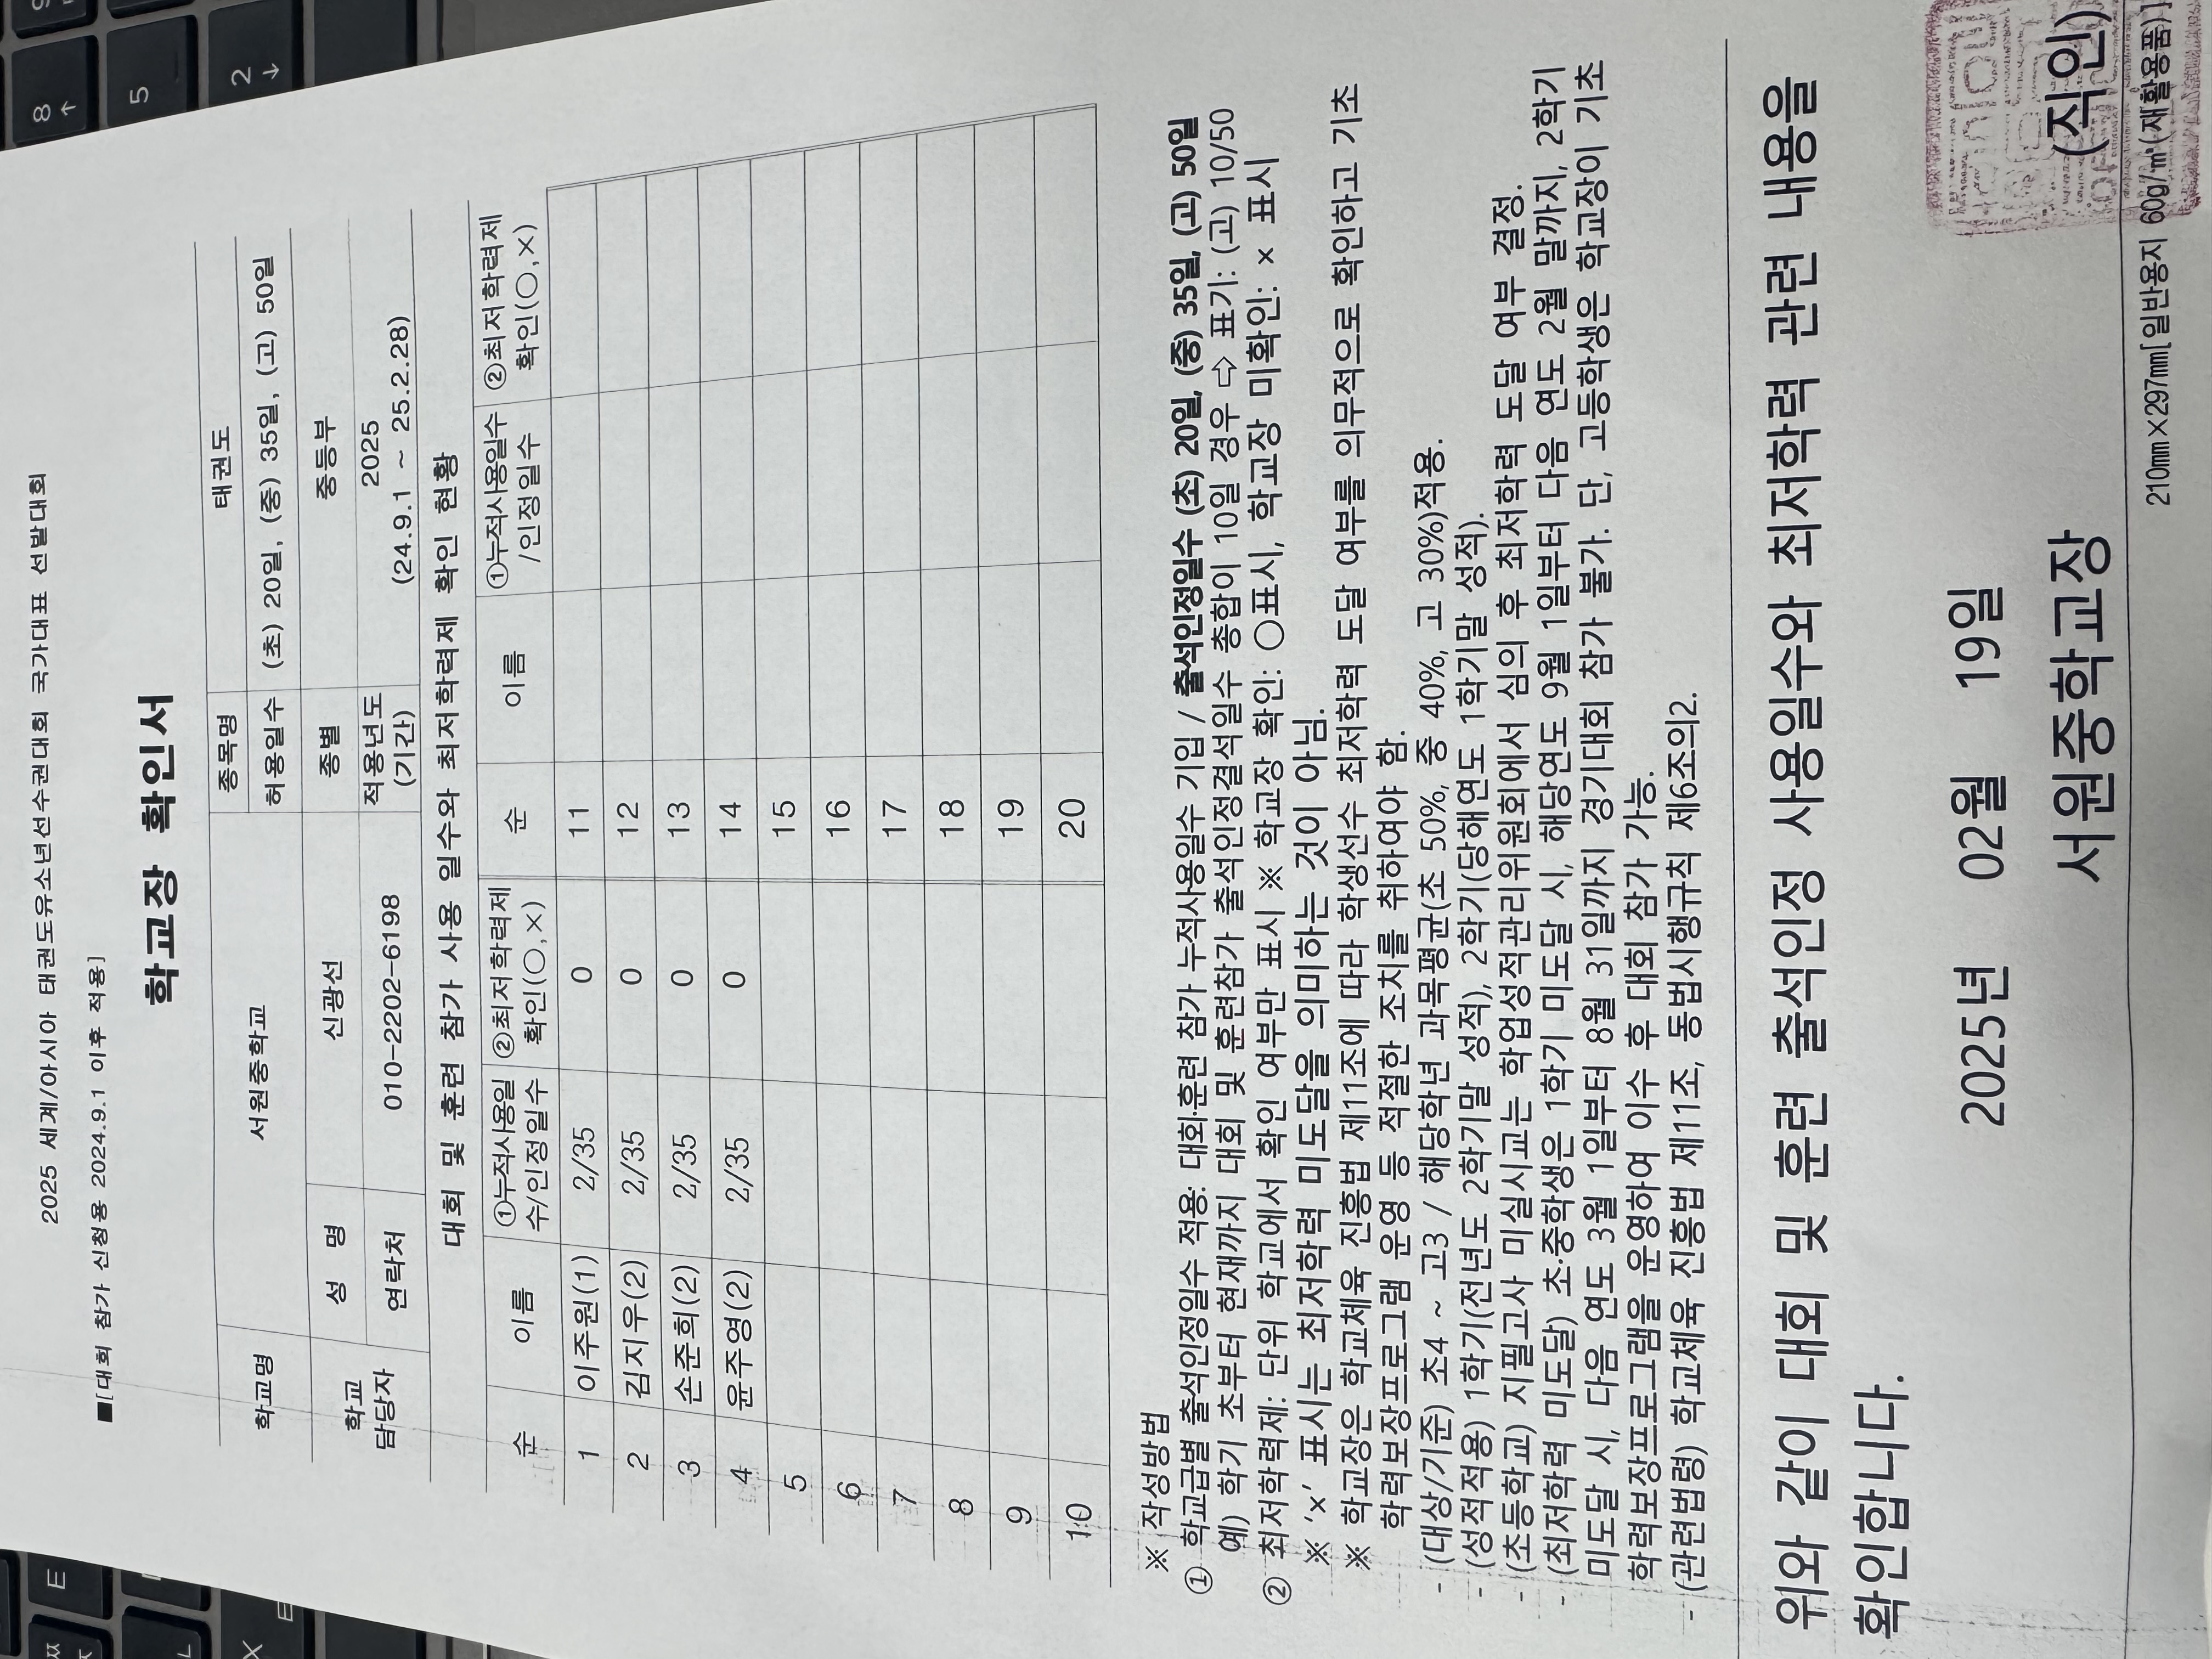 2025 세계/아시아 태권도유소년선수권대회 국가대표 선발대회
■[대회 참가 신청용 2024.9.1 이후 적용]
학교장 확인서
학교명 서원중학교 종목명 태권도
허용일수 (초) 20일, (중) 35일, (고) 50일
학교 담당자 성 명 신광선 종별 중등부
연락처 010-2202-6198 적용년도 (기간) 2025 (24.9.1 ~ 25.2.28)
대회 및 훈련 참가 사용 일수와 최저학력제 확인 현황
순 이름 ①누적사용일수/인정일수 ②최저학력제 확인(○,×) 순 이름 ①누적사용일수/인정일수 ②최저학력제 확인(○,×)
1 이주원(1) 2/35 0 11
2 김지우(2) 2/35 0 12
3 손준희(2) 2/35 0 13
4 윤주영(2) 2/35 0 14
5 15
6 16
7 17
8 18
9 19
10 20
※ 작성방법
① 학교급별 출석인정일수 적용: 대회·훈련 참가 누적사용일수 기입 / 출석인정일수 (초) 20일, (중) 35일, (고) 50일
예) 학기 초부터 현재까지 대회 및 훈련참가 출석인정결석일수 총합이 10일 경우 ⇨ 표기: (고) 10/50
② 최저학력제: 단위 학교에서 확인 여부만 표시 ※ 학교장 확인: ○표시, 학교장 미확인: × 표시
※ ‘x’ 표시는 최저학력 미도달을 의미하는 것이 아님.
※ 학교장은 학교체육 진흥법 제11조에 따라 학생선수 최저학력 도달 여부를 의무적으로 확인하고 기초
학력보장프로그램 운영 등 적절한 조치를 취하여야 함.
- (대상/기준) 초4 ~ 고3 / 해당학년 과목평균(초 50%, 중 40%, 고 30%)적용.
- (성적적용) 1학기(전년도 2학기말 성적), 2학기(당해연도 1학기말 성적).
- (초등학교) 지필고사 미실시교는 학업성적관리위원회에서 심의 후 최저학력 도달 여부 결정.
- (최저학력 미도달) 초·중학생은 1학기 미도달 시, 해당연도 9월 1일부터 다음 연도 2월 말까지, 2학기
미도달 시, 다음 연도 3월 1일부터 8월 31일까지 경기대회 참가 불가. 단, 고등학생은 학교장이 기초
학력보장프로그램을 운영하여 이수 후 대회 참가 가능.
- (관련법령) 학교체육 진흥법 제11조, 동법시행규칙 제6조의2.
위와 같이 대회 및 훈련 출석인정 사용일수와 최저학력 관련 내용을
확인합니다.
2025년 02월 19일
서원중학교장 (직인)
210㎜×297㎜[일반용지 60g/㎡(재활용품)]